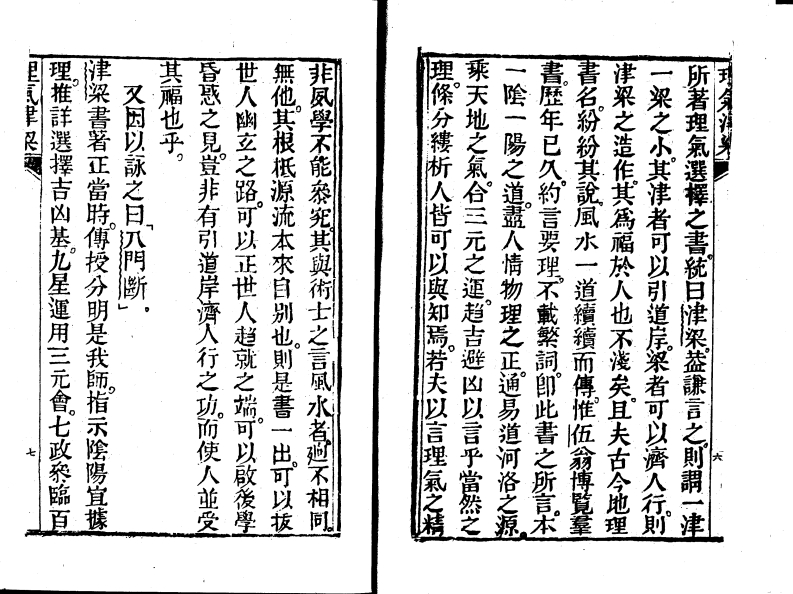 理氣津梁
所著理氣選擇之書統曰津梁葢謙言之則謂一津
一梁之小其津者可以引道岸梁者可以濟人行則
津梁之造作其爲福於人也不淺矣且夫古今地理
書名紛紛其說風水一道續續而傳惟伍翁博覧羣
書歴年已久約言要理不載繁詞卽此書之所言本
一陰一陽之道盡人情物理之正通易道河洛之源
乘天地之氣合三元之運趨吉避凶以言乎當然之
理條分縷析人皆可以與知焉若夫以言理氣之精
六
非風學不能叅究其與術士之言風水者逈不相同
無他其根柢源流本來自別也則是書一出可以拔
世人幽玄之路可以正世人趨就之端可以啟後學
昏惑之見豈非有引道岸濟人行之功而使人並受
其福也乎
又因以詠之曰「八門斷」
津梁書著正當時傳授分明是我師指示陰陽宜據
理推詳選擇吉凶基九星運用三元會七政叅臨百
理氣津梁
七